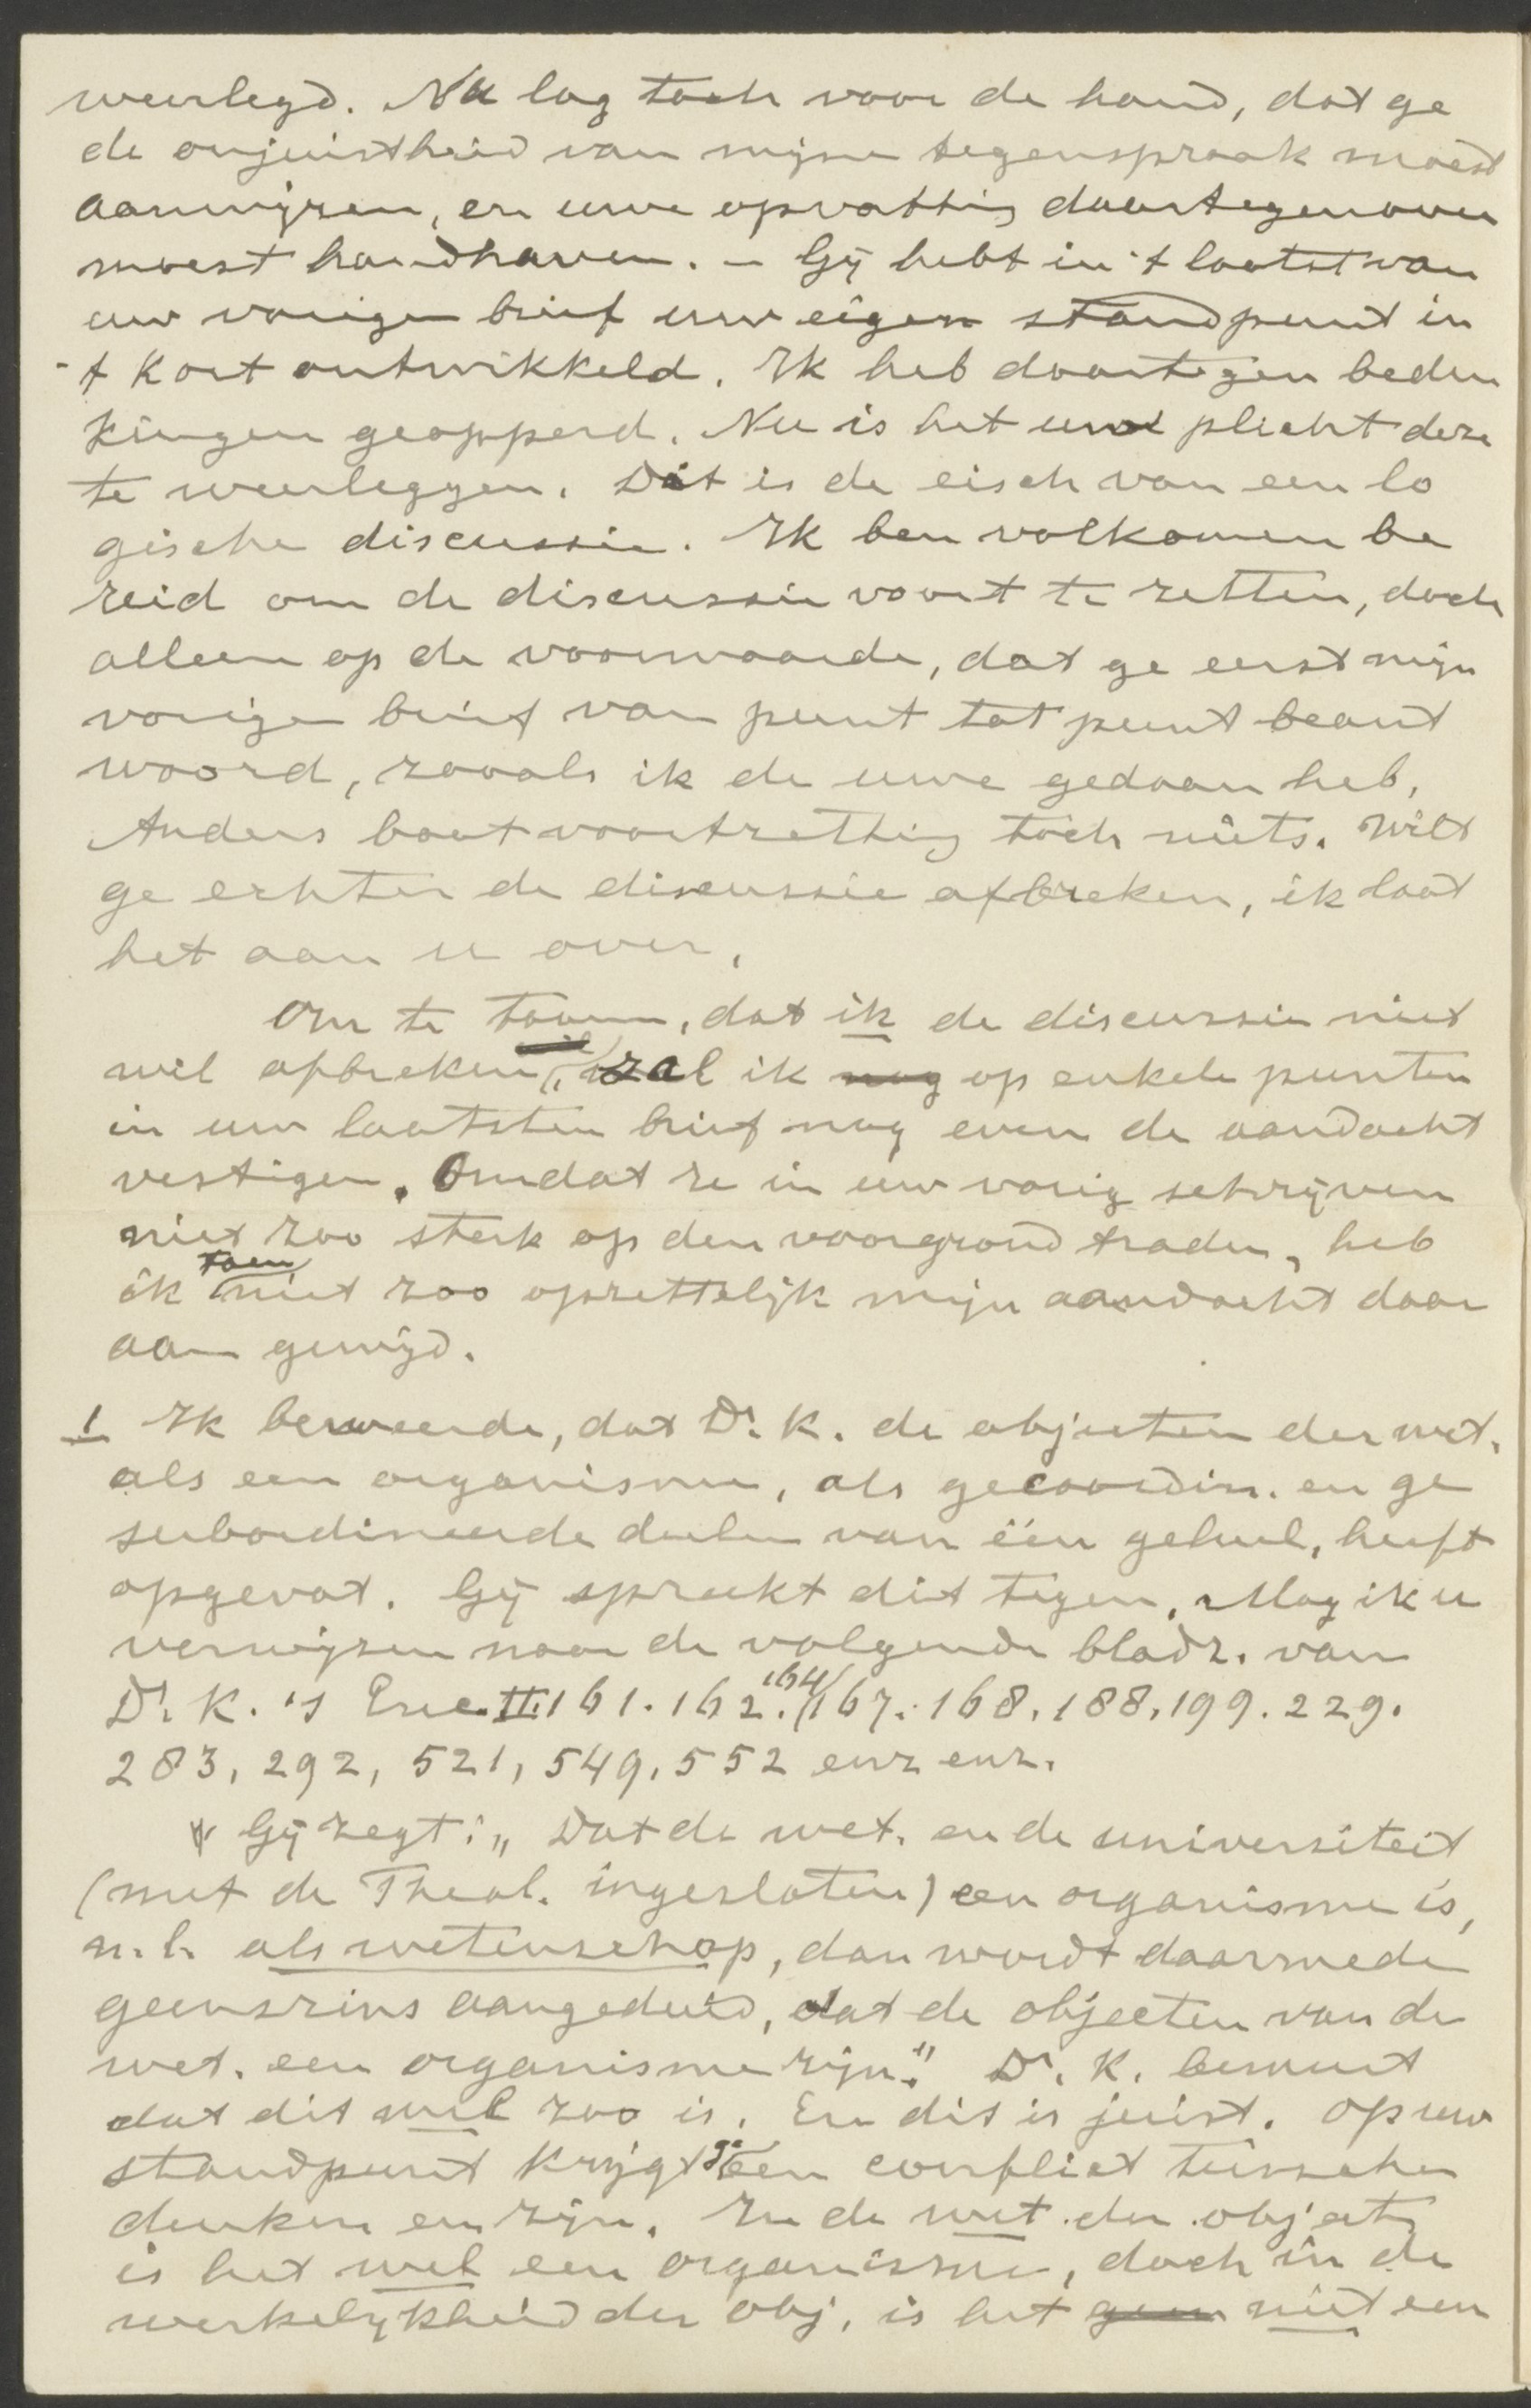 weerlegd. Nu lag toch voor de hand, dat ge
de onjuistheid van mijne tegenspraak moest
aanwijzen, en uwe opvatting daartegenover
moest handhaven. – Gij hebt in 't laatst van
uw vorigen brief uw eigen standpunt in
't kort ontwikkeld. Ik heb daartegen beden
kingen geopperd. Nu is het uw plicht deze
te weerleggen. Dit is de eisch van een lo
gische discussie. Ik ben volkomen be
reid om de discussie voort te zetten, doch
alleen op de voorwaarde, dat ge eerst mijn
vorigen brief van punt tot punt beant
woord, zooals ik de uwe gedaan heb,
Anders baat voortzetting tòch niets. Wilt
ge echter de discussie afbreken, ik laat
het aan u over.
Om te toonen, dat ik de discussie niet
wil afbreken, zal ik nog op enkele punten
in uw laatsten brief nog even de aandacht
vestigen. Omdat ze in uw vorig schrijven
niet zoo sterk op den voorgrond traden, heb
ik toen niet zoo opzettelijk mijn aandacht daar
aan gewijd.
1 Ik beweerde, dat Dr. K. de objecten der wet.
als een organisme, als gecoördin. en ge
subordineerde deelen van één geheel, heeft
opgevat. Gij spreekt dit tegen. Mag ik u
verwijzen naar de volgende bladz. van
Dr. K.'s Enc. II. 161. 162. 164 167. 168. 188. 199. 229.
283, 292, 521, 549, 552 enz enz.
Gij zegt: „Dat de wet. en de universiteit
(met de Theol. ingesloten) een organisme is,
n.l. als wetenschap, dan wordt daarmede
geenszins aangeduid, dat de objecten van de
wet. een organisme zijn." Dr. K. beweert
dat dit wel zoo is. En dit is juist. Op uw
standpunt krijgt ge een conflict tusschen
denken en zijn. In de wet. der objecten
is het wel een organisme, doch in de
werkelijkheid der obj. is het geen niet een